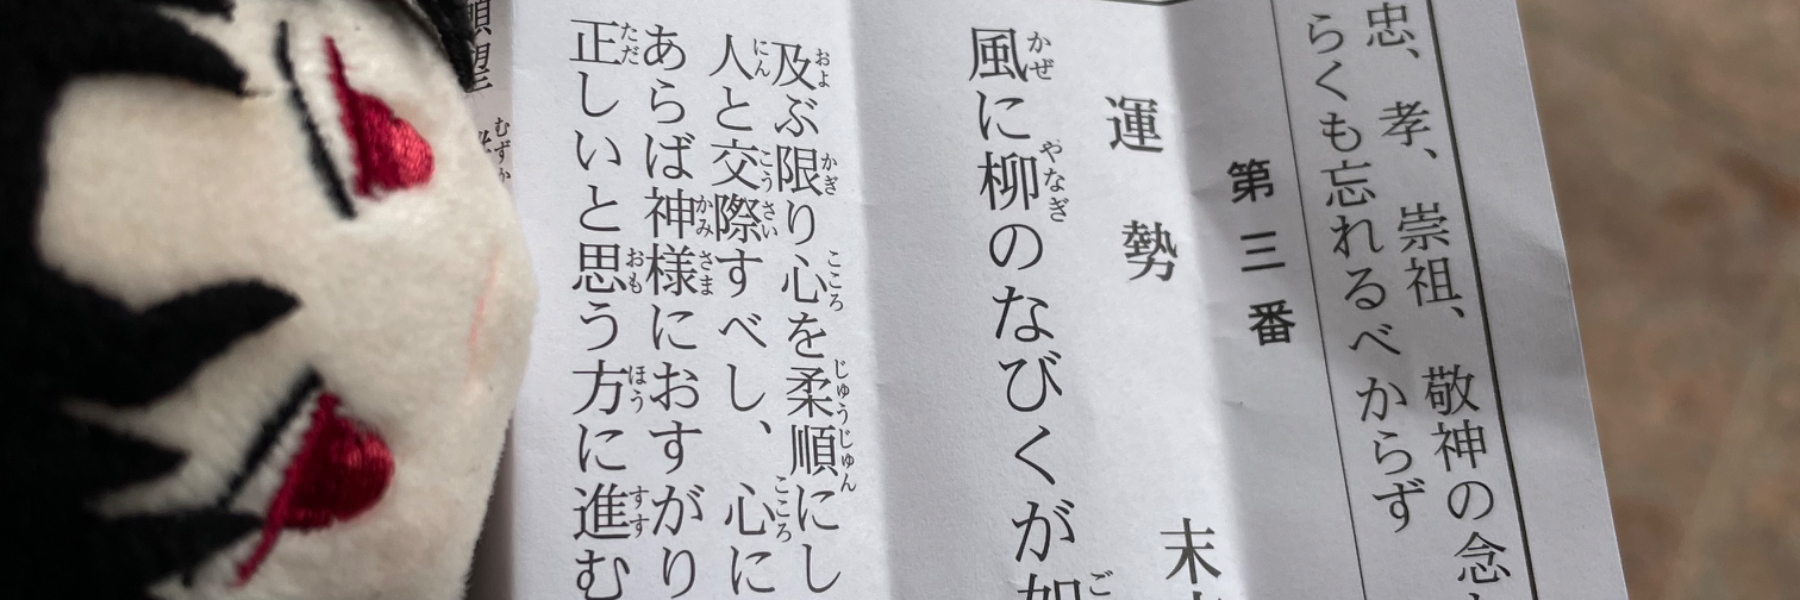 忠、孝、崇祖、敬神の念
らくも忘れるべからず
第三番
運勢 末
風に柳のなびくが如
及ぶ限り心を柔順にし
人と交際すべし、心に
あらば神様におすがり
正しいと思う方に進む